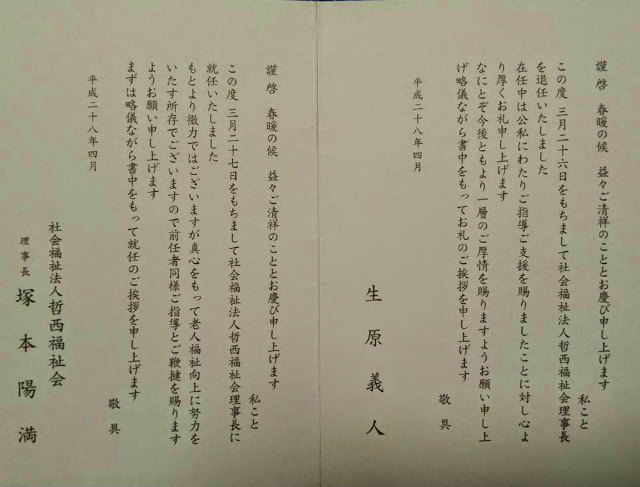 謹啓　春暖の候　益々ご清祥のこととお慶び申し上げます
私こと
この度　三月二十六日をもちまして社会福祉法人哲西福祉会理事長
を退任いたしました
在任中は公私にわたりご指導ご支援を賜りましたことに対し心よ
り厚くお礼申し上げます
なにとぞ今後ともより一層のご厚情を賜りますようお願い申し上
げ略儀ながら書中をもってお礼のご挨拶を申し上げます
敬具
平成二十八年四月
生原義人
謹啓　春暖の候　益々ご清祥のこととお慶び申し上げます
私こと
この度　三月二十七日をもちまして社会福祉法人哲西福祉会理事長に
就任いたしました
もとより微力ではございますが真心をもって老人福祉向上に努力を
いたす所存でございますので前任者同様ご指導とご鞭撻を賜ります
ようお願い申し上げます
まずは略儀ながら書中をもって就任のご挨拶を申し上げます
敬具
平成二十八年四月
社会福祉法人哲西福祉会
理事長　塚本陽満